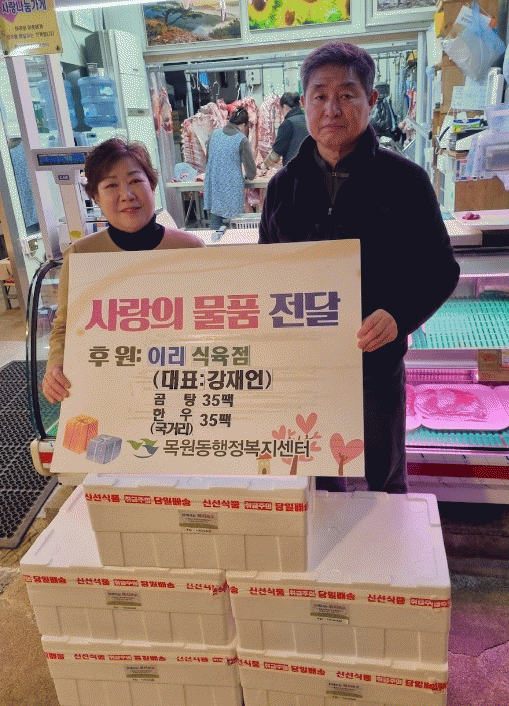 사랑나눔가게
사랑의 물품 전달
후 원: 이리 식육점
(대표:강재언)
곰 탕 35팩
한 우 35팩
(국거리)
목원동행정복지센터
신선식품 취급주의 당일배송
당일배송 신선식품 취급주의 당일배송 신선식품
신선식품 취급주의 당일배송
신선식품 취급주의 당일배송
신선식품 취급주의 당일배송